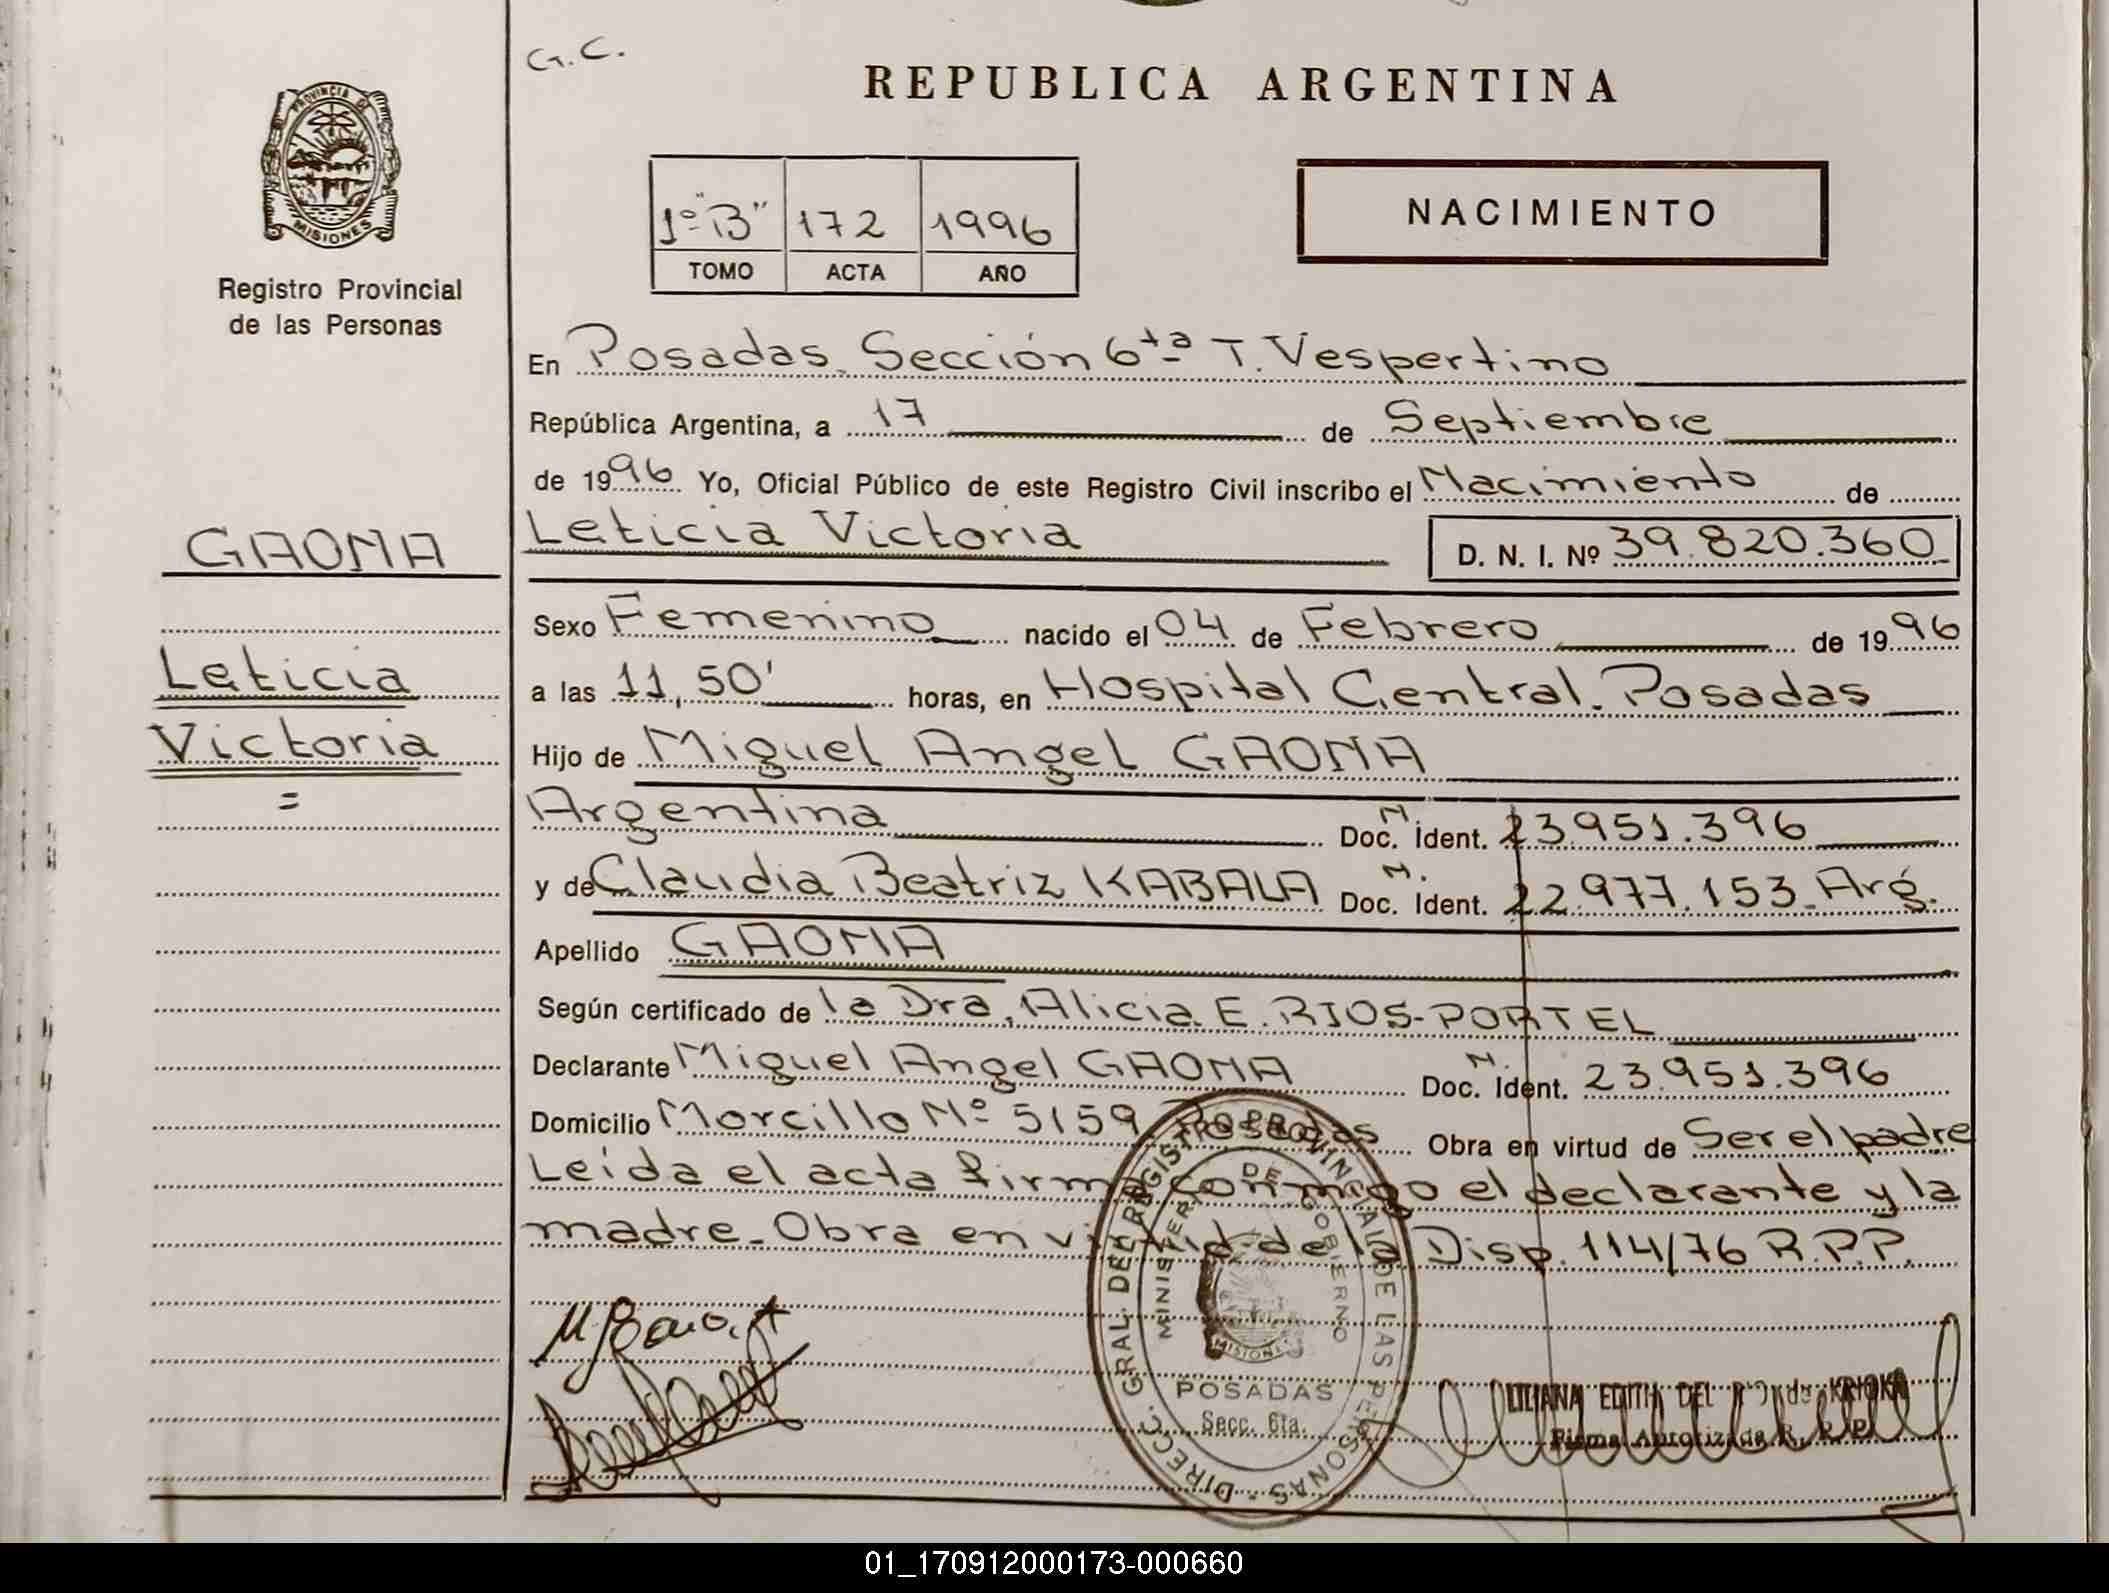 G.C.
REPUBLICA ARGENTINA
PROVINCIA DE
MISIONES
Registro Provincial
de las Personas
1º "B" 172 1996
TOMO ACTA AÑO
NACIMIENTO
En Posadas. Sección 6ta T. Vespertino
República Argentina, a 17 de Septiembre
de 1996 Yo, Oficial Público de este Registro Civil inscribo el Nacimiento de
Leticia Victoria D. N. I. Nº 39.820.360
GAONA
Leticia
Victoria
=
Sexo Femenino nacido el 04 de Febrero de 1996
a las 11,50' horas, en Hospital Central. Posadas
Hijo de Miguel Angel GAONA
Argentina Doc. N. Ident. 23951.396
y de Claudia Beatriz KABALA Doc. N. Ident. 22.977.153_Arg.
Apellido GAONA
Según certificado de la Dra. Alicia E. RIOS-PORTEL
Declarante Miguel Angel GAONA Doc. N. Ident. 23.951.396
Domicilio Morcillo Nº 5159 Posadas Obra en virtud de Ser el padre
Leída el acta firma conmigo el declarante y la
madre_Obra en virtud de la Disp. 114/76 R.P.P.
DIRECC. GRAL. DEL REGISTRO PROVINCIAL DE LAS PERSONAS
MINISTERIO DE GOBIERNO
MISIONES
POSADAS
Secc. 6ta.
LILIANA EDITH DEL de KRIOKA
Firma Autorizada R. P. P.
01_170912000173-000660